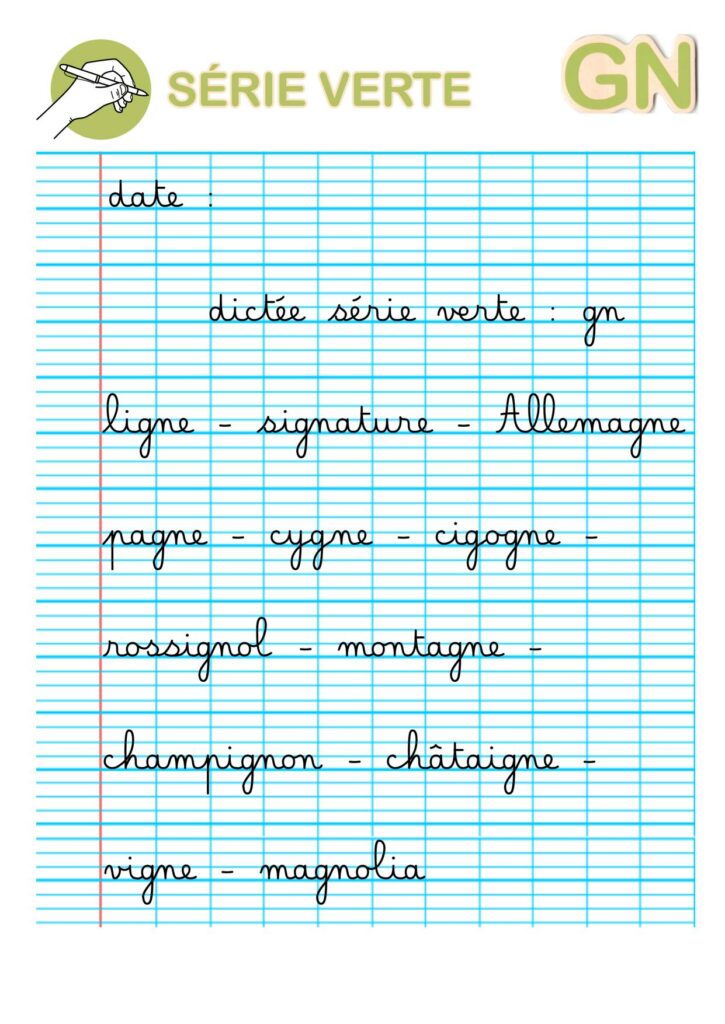 SÉRIE VERTE
GN
date :
dictée série verte : gn
ligne - signature - Allemagne
pagne - cygne - cigogne -
rossignol - montagne -
champignon - châtaigne -
vigne - magnolia